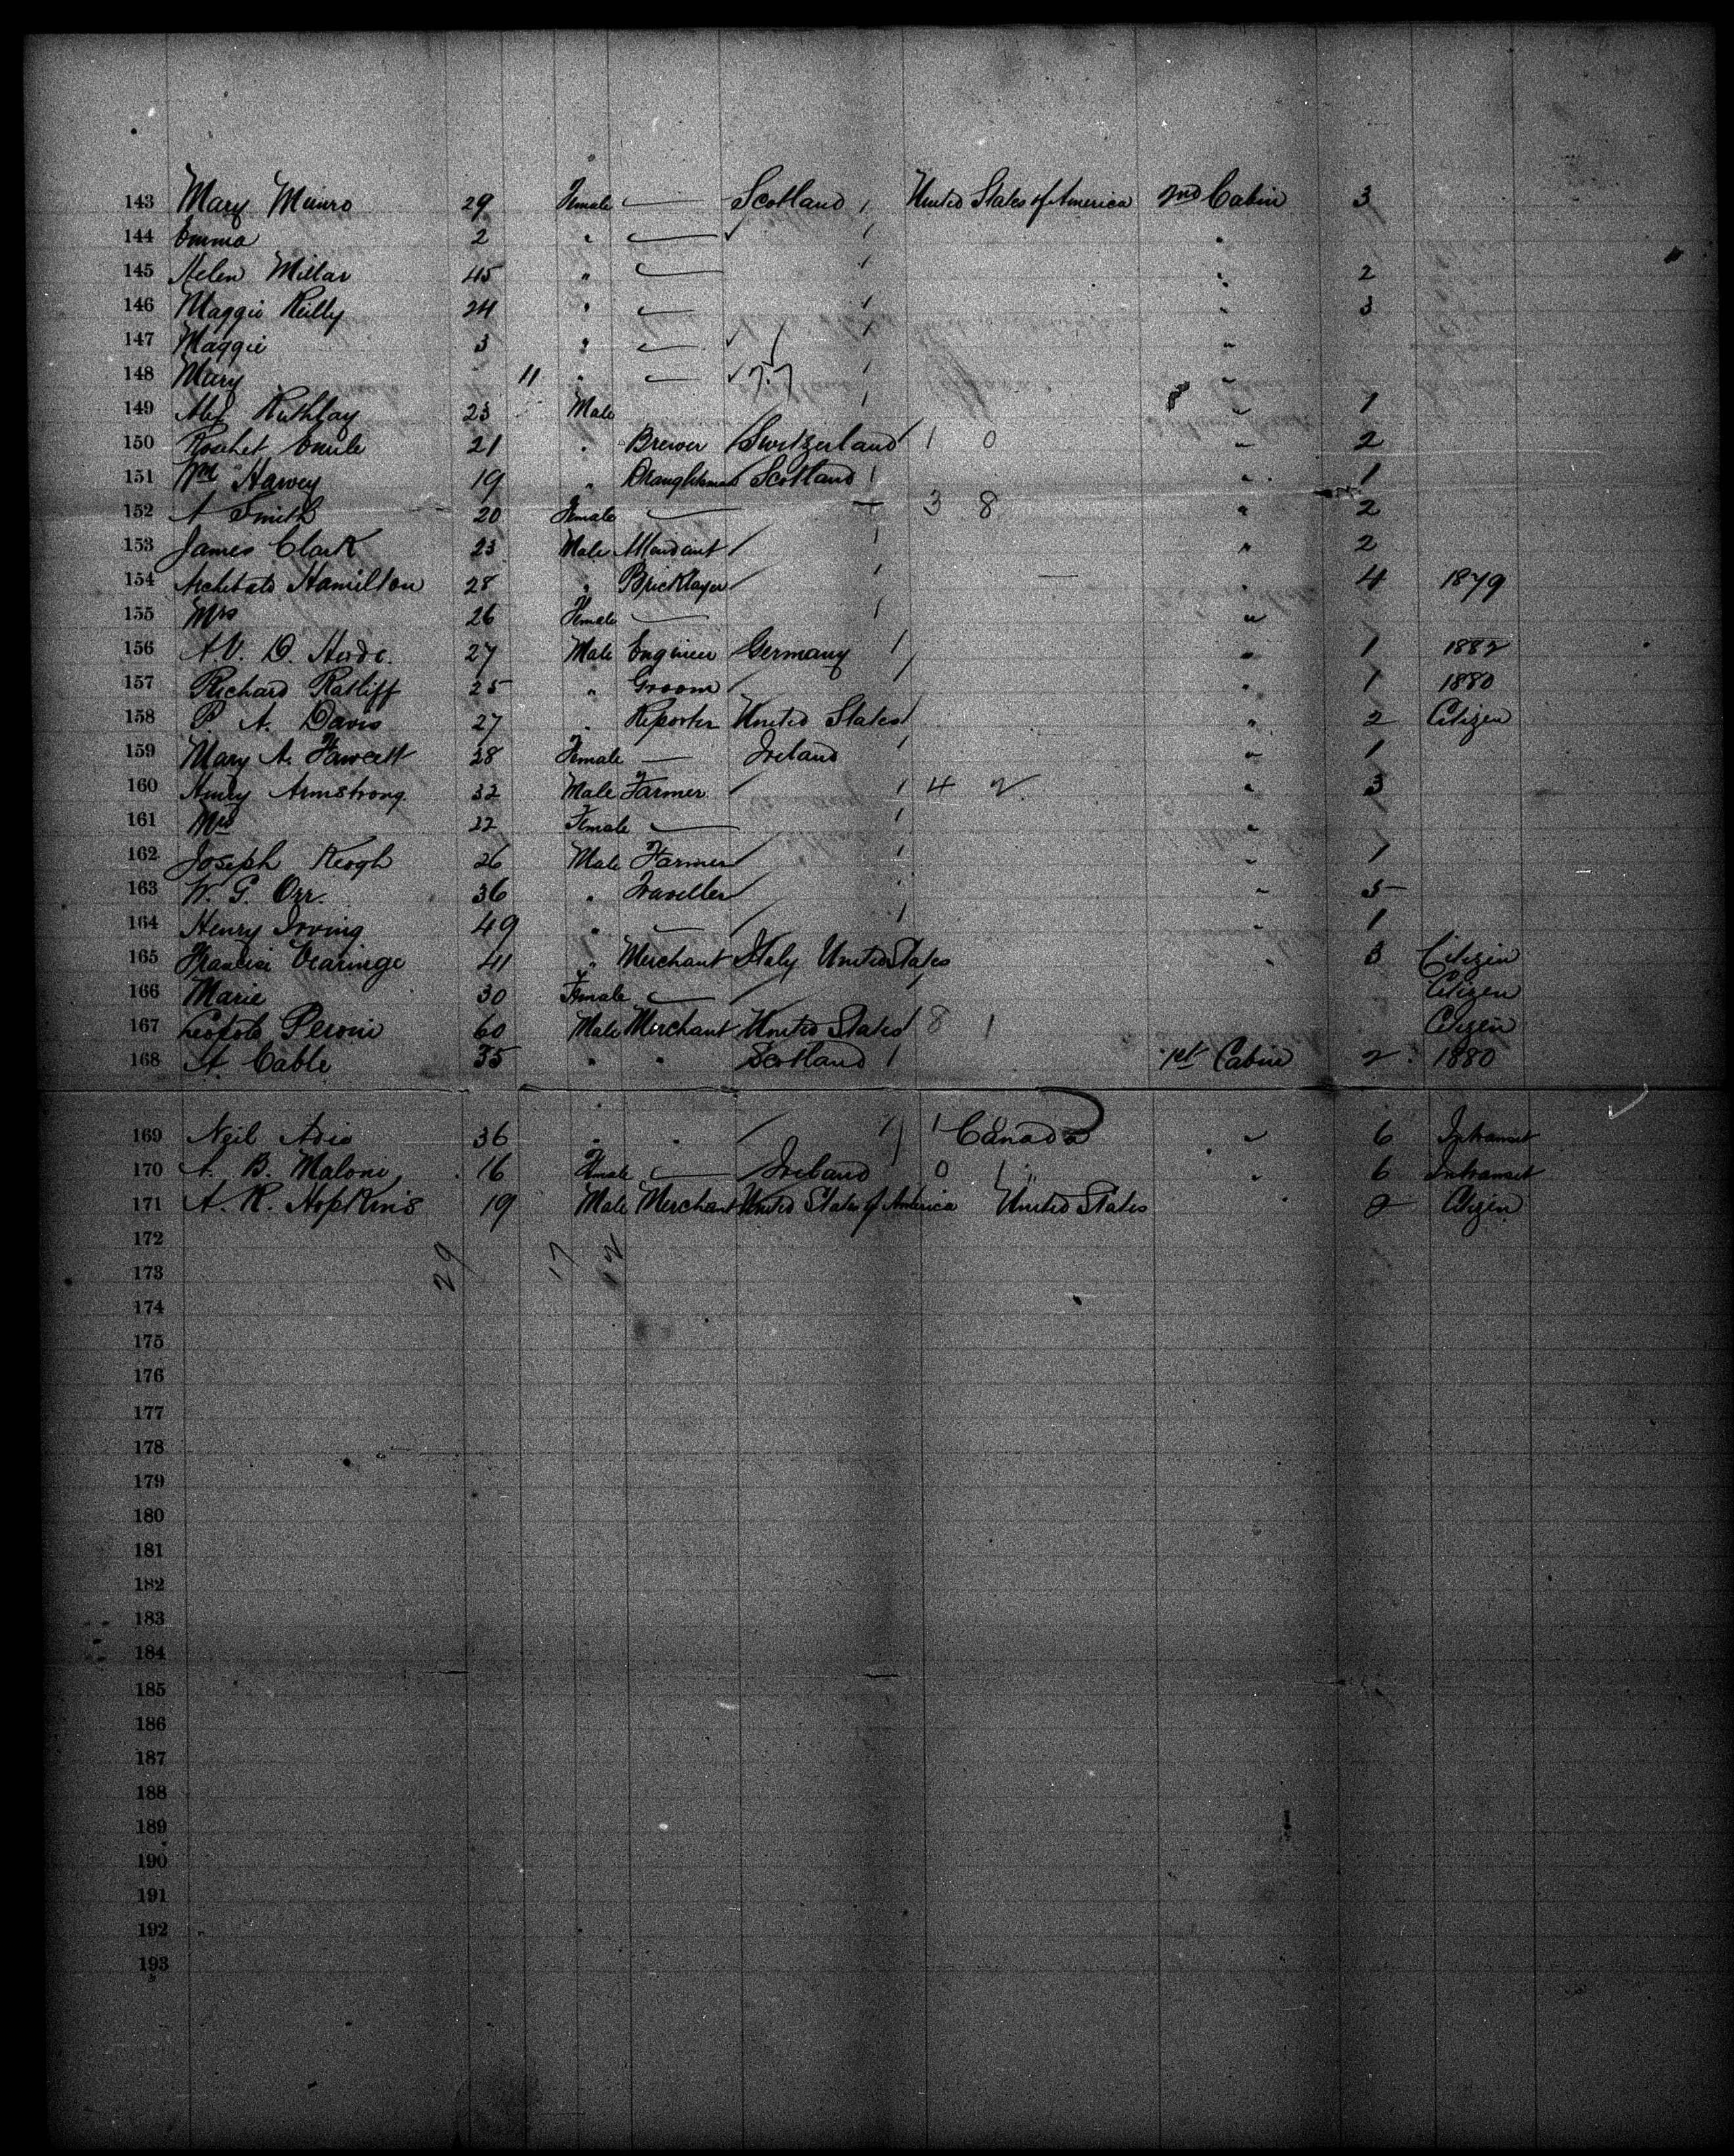 143 Mary Munro 29 Female — Scotland United States of America 2nd Cabin 3
144 Emma 2 " — "
145 Helen Millar 45 " — " 2
146 Maggie Reilly 24 " — " 3
147 Maggie 3 " — "
148 Mary 11 " — "
149 Alex 23 Male " 1
150 Rochet Emile 21 " Brewer Switzerland 1 0 " 2
151 Wm Harvey 19 " Draughtsman Scotland " 1
152 A Smith 20 Female — 3 8 " 2
153 James Clark 23 Male " 2
154 Archibald Hamilton 28 " Bricklayer " 4 1879
155 Mrs 26 Female — "
156 A.V. D. 27 Male Engineer Germany " 1 1882
157 Richard Ratliff 25 " Groom " 1 1880
158 P. A. Davis 27 " Reporter United States " 2 Citizen
159 Mary A. Fawcett 28 Female — Ireland " 1
160 Henry Armstrong 32 Male Farmer 4 2 " 3
161 Mrs 22 Female — "
162 Joseph Keogh 26 Male Farmer " 1
163 W. G. Orr. 36 " Traveller " 5
164 Henry Irving 49 " — " 1
165 41 " Merchant Italy United States " 3 Citizen
166 Marie 30 Female — Citizen
167 Peroni 60 Male Merchant United States 8 1 Citizen
168 A. Cable 35 " " Scotland 1st Cabin 2 1880
169 Neil 36 " " Canada " 6 Intransit
170 A. B. Maloni 16 Female — Ireland 0 " 6 Intransit
171 A. R. Hopkins 19 Male Merchant United States of America United States 2 Citizen
172
29 17 12
173
174
175
176
177
178
179
180
181
182
183
184
185
186
187
188
189
190
191
192
193